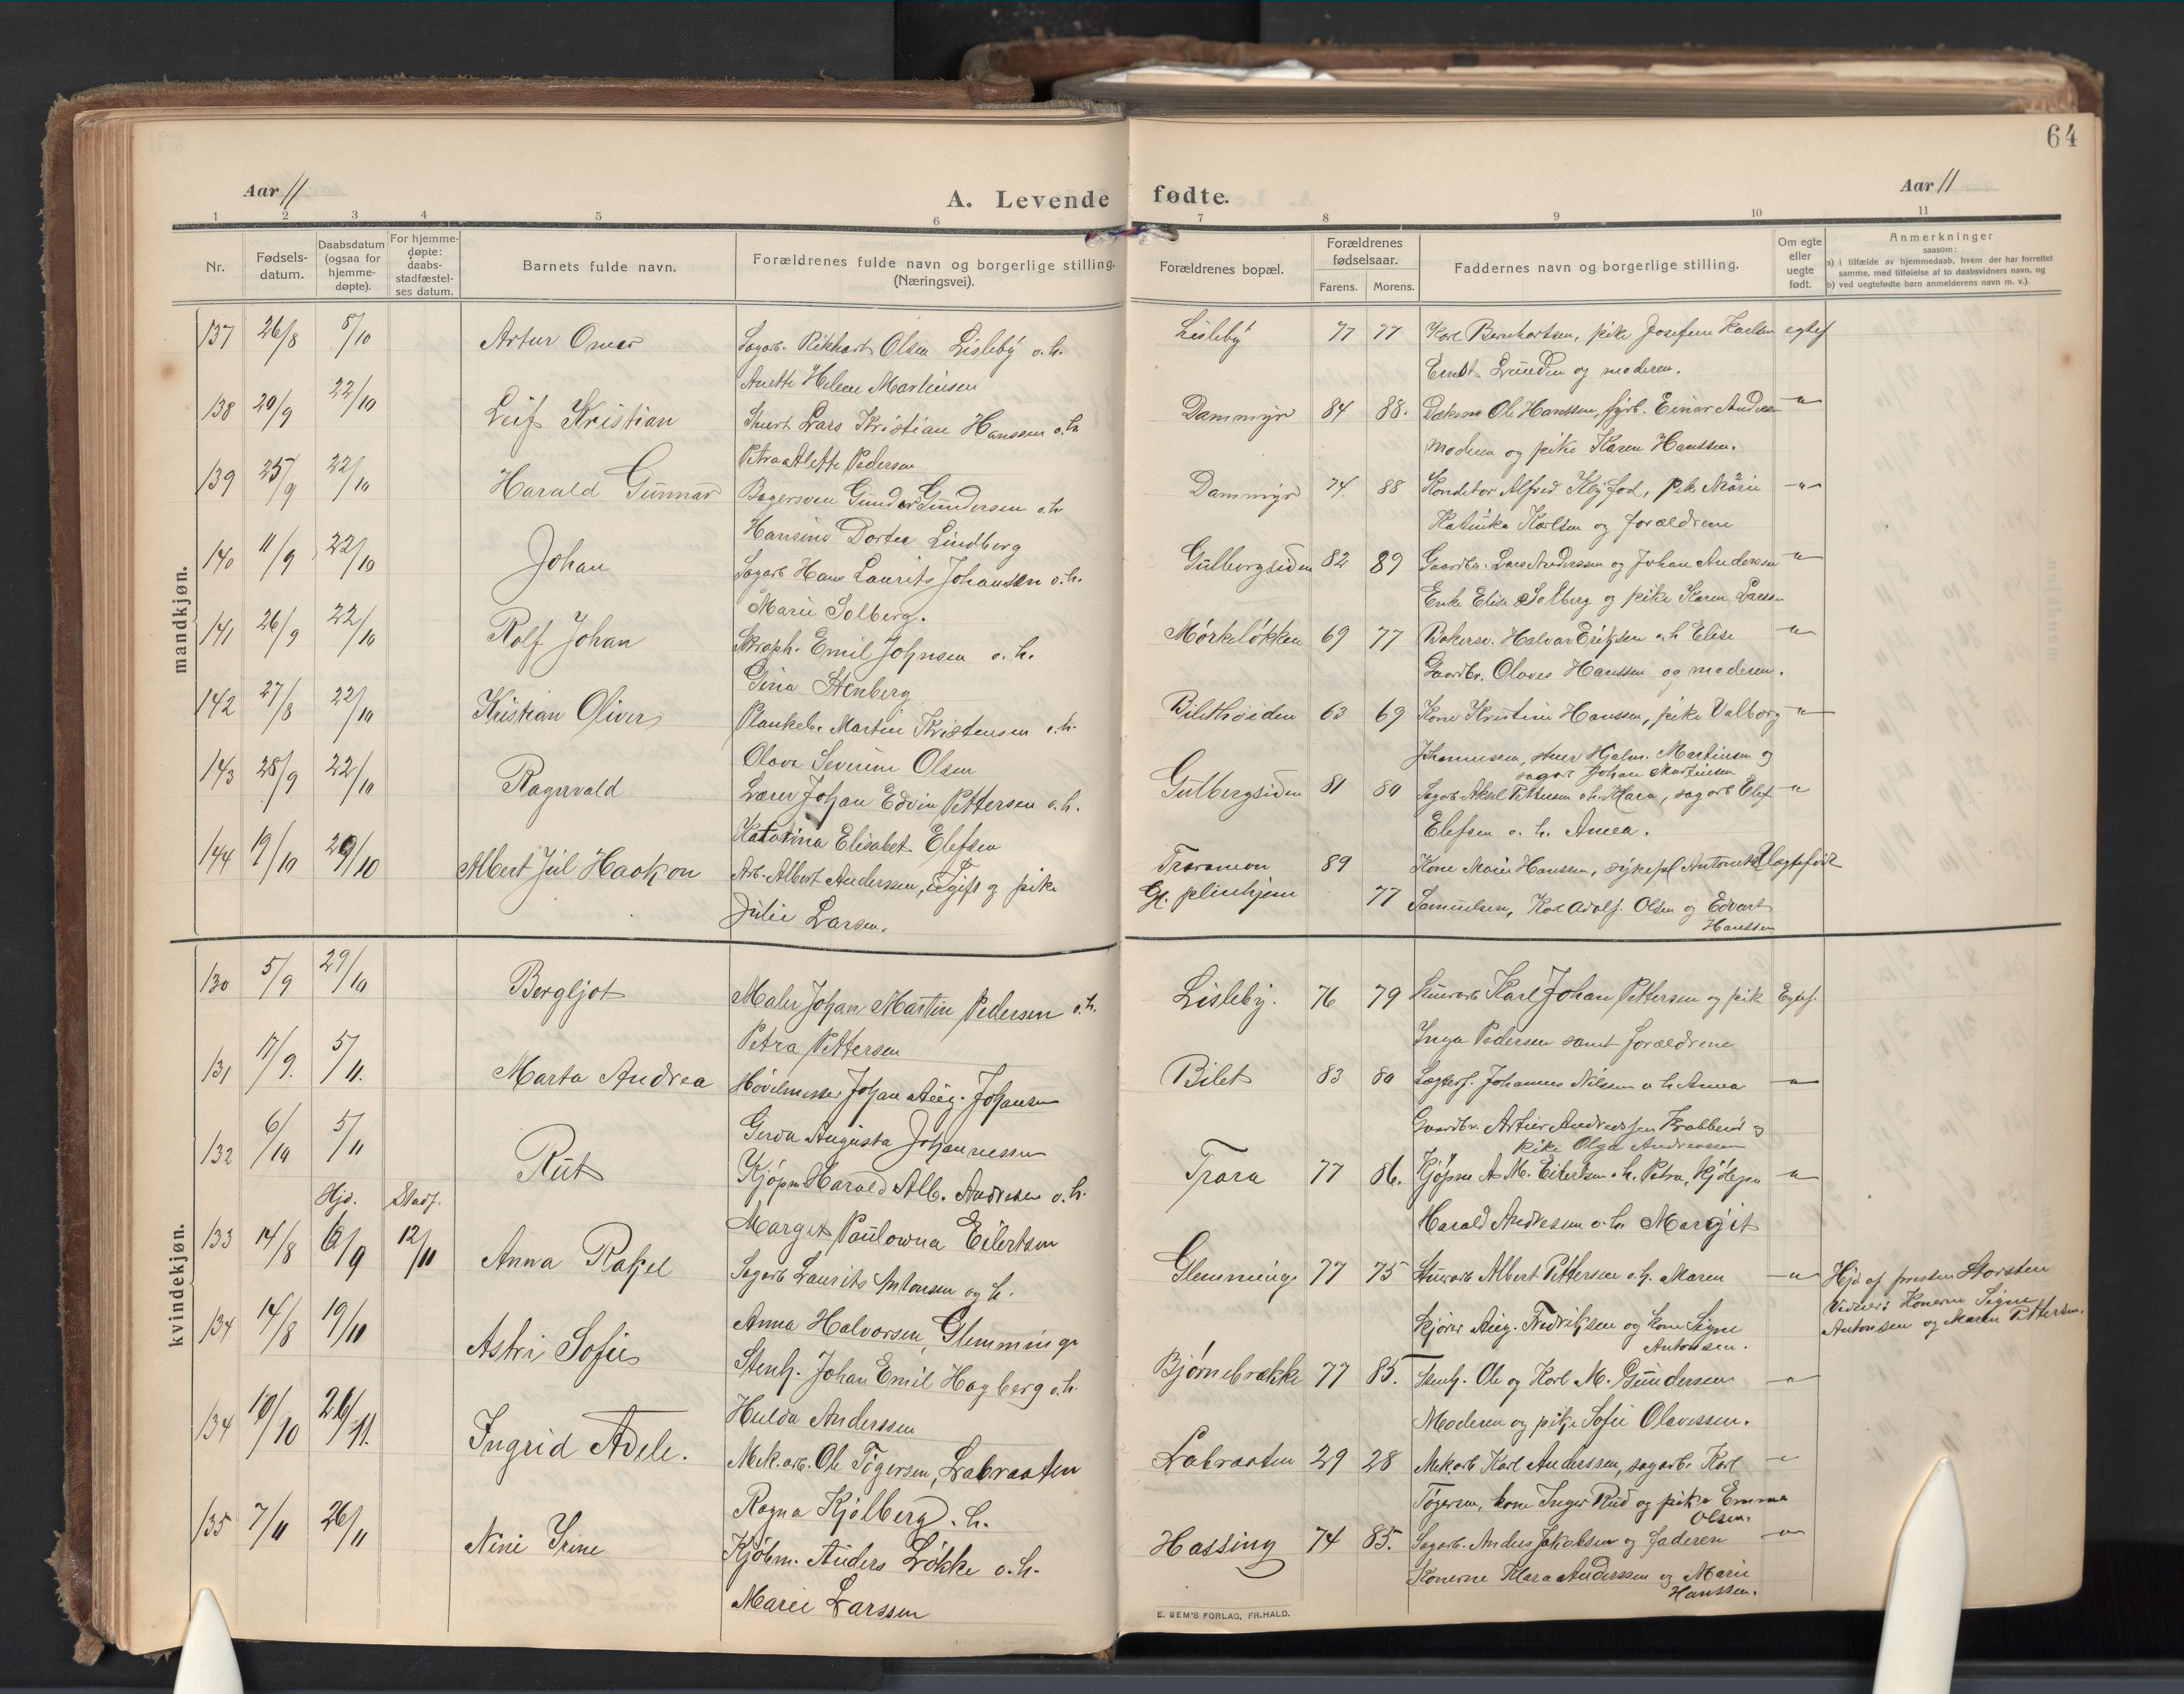 64
Aar 11
A. Levende fødte.
Aar 11
1 2 3 4 5 6 7 8 9 10 11
Nr.
Fødsels-
datum.
Daabsdatum
(ogsaa for
hjemme-
døpte).
For hjemme-
døpte:
daabs-
stadfæstel-
ses datum.
Barnets fulde navn.
Forældrenes fulde navn og borgerlige stilling.
(Næringsvei).
Forældrenes bopæl.
Forældrenes
fødselsaar.
Farens. Morens.
Faddernes navn og borgerlige stilling.
Om egte
eller
uegte
født.
Anmerkninger
saasom:
a) i tilfælde av hjemmedaab, hvem der har forrettet
samme, med tilføielse af to daabsvidners navn, og
b) ved uegtefødte barn anmelderens navn m. v.).
mandkjøn.
137 26/8 8/10 Artur Omar Sagarb. Rikhart Olsen Lisleby o. h.
Anette Helene Martinsen
Lisleby 77 77 Kone Bernhartsen, pike Josefine Karlsen egtef
Ernst Lunden og moderen.
138 20/9 22/10 Leif Kristian Stuert Lars Kristian Hanssen o. h.
Petra Alette Pedersen
Dammyr 84 88. Ole Hanssen, fyrb. Einar Andersen -"-
Moderen og pike Karen Hanssen.
139 25/9 22/10 Harald Gunnar Bagersven Gunder Gundersen o. h.
Hansine Dortea Lindberg
Dammyr 74 88 Konditor Alfred pike Marie -"-
Katinka Karlsen og forældrene
140 11/9 22/10 Johan Sagarb Hans Laurits Johansen o. h.
Marie Solberg.
Gulbergsiden 82 89 Gaardbr. Lars Anderssen og Johan Anderssen -"-
Enke Elise Solberg og pike Karen Larsen
141 26/9 22/10 Rolf Johan Skraph. Emil Johnsen o. h.
Gina Stenberg
Mørkeløkken 69 77 Bokersv. Halvar Eriksen o. h Elise -"-
Gaardbr. Olaves Hanssen og moderen.
142 27/8 22/10 Kristian Oliver Plankeb. Martin Kristensen o. h.
Olava Severine Olsen
Bilethøiden 63 69 Kone Kristine Hanssen, pike Valborg -"-
Johannessen, Hjalm. Martinsen og
sagarb Johan Martinsen
143 28/9 22/10 Ragnvald Lærer Johan Edvin Pettersen o. h.
Katarina Elisabet Elefsen
Gulbergsiden 81 80 Sagarb Aksel Pettersen o. h. Klara, sagarb Elef -"-
Elefsen o. h. Anna.
144 19/10 29/10 Albert Jul Haakon Arb. Albert Anderssen, ugift og pike
Julie Larsen.
Traramoen 89 Kone Marie Hanssen, sykepl Antonette Uegtefødt
Gl. pleiehjem 77 Samuelsen, Karl Adolf. Olsen og Edvart
Hanssen
kvindekjøn.
130 5/9 29/10 Bergljot Maler Johan Martin Pedersen o. h.
Petra Pettersen
Lisleby. 76 79 Stuerarb Karl Johan Pettersen og pike Egtef.
Inga Pedersen samt forældrene
131 17/9. 5/11. Marta Andrea Høvelmester Johan Aug. Johansen
Gerda Augusta Johannessen
Bilet 83 80 Johannes Nilssen o. h Anna -"-
Gaardbr. Artur Andreassen og
pike Olga Andreassen
132 6/10 5/11 Rut Kjøpm Harald Alb. Andresen o. h.
Margit Paulowna Eilertsen
Trara 77 86. Kjøpm A. M. Eilertsen o. h. Petra, Kjøbm -"-
Harald Andresen o. h. Margit
Hjd. Stadf.
133 14/8 6/9 12/11 Anna Rakel Sagarb Laurits Antonsen og h.
Anna Halvorsen, Glemminge
Glemminge 77 75 Stuerarb Albert Pettersen o. h. Maren -"-
Kjører Aug. Fredriksen og kone Signe
Antonsen.
Hjd af presten Storsten
Vidner: Konerne Signe
Antonsen og Maren Pettersen.
134 14/8 19/11 Astri Sofie Stenh. Johan Emil Hagberg o. h.
Hulda Anderssen
Bjørnebrække 77 85. Stenh. Ole og Karl M. Gundersen -"-
Moderen og pike Sofie Olavessen.
134 10/10 26/11. Ingrid Adele. Mek. arb. Ole Tøgersen, Labraaten
Ragna Kjølberg. h.
Labraaten 29 28 Mek. arb Karl Anderssen, sagarb. Karl -"-
Tøgersen, kone Inger Rud og pike Emma
Olsen.
135 7/11 26/11 Nini Irene Kjøbm. Anders Løkke o. h.
Marie Larssen
Hassing 74 85. Sagarb. Anders Jakobsen og faderen -"-
Konerne Klara Anderssen og Marie
Hanssen.
E. SEM'S FORLAG, FR.HALD.